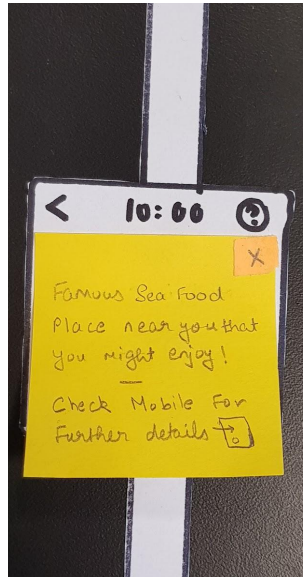 < 10:00 ?
X
Famous Sea Food
Place near you that
you might enjoy!
Check Mobile For
Further details